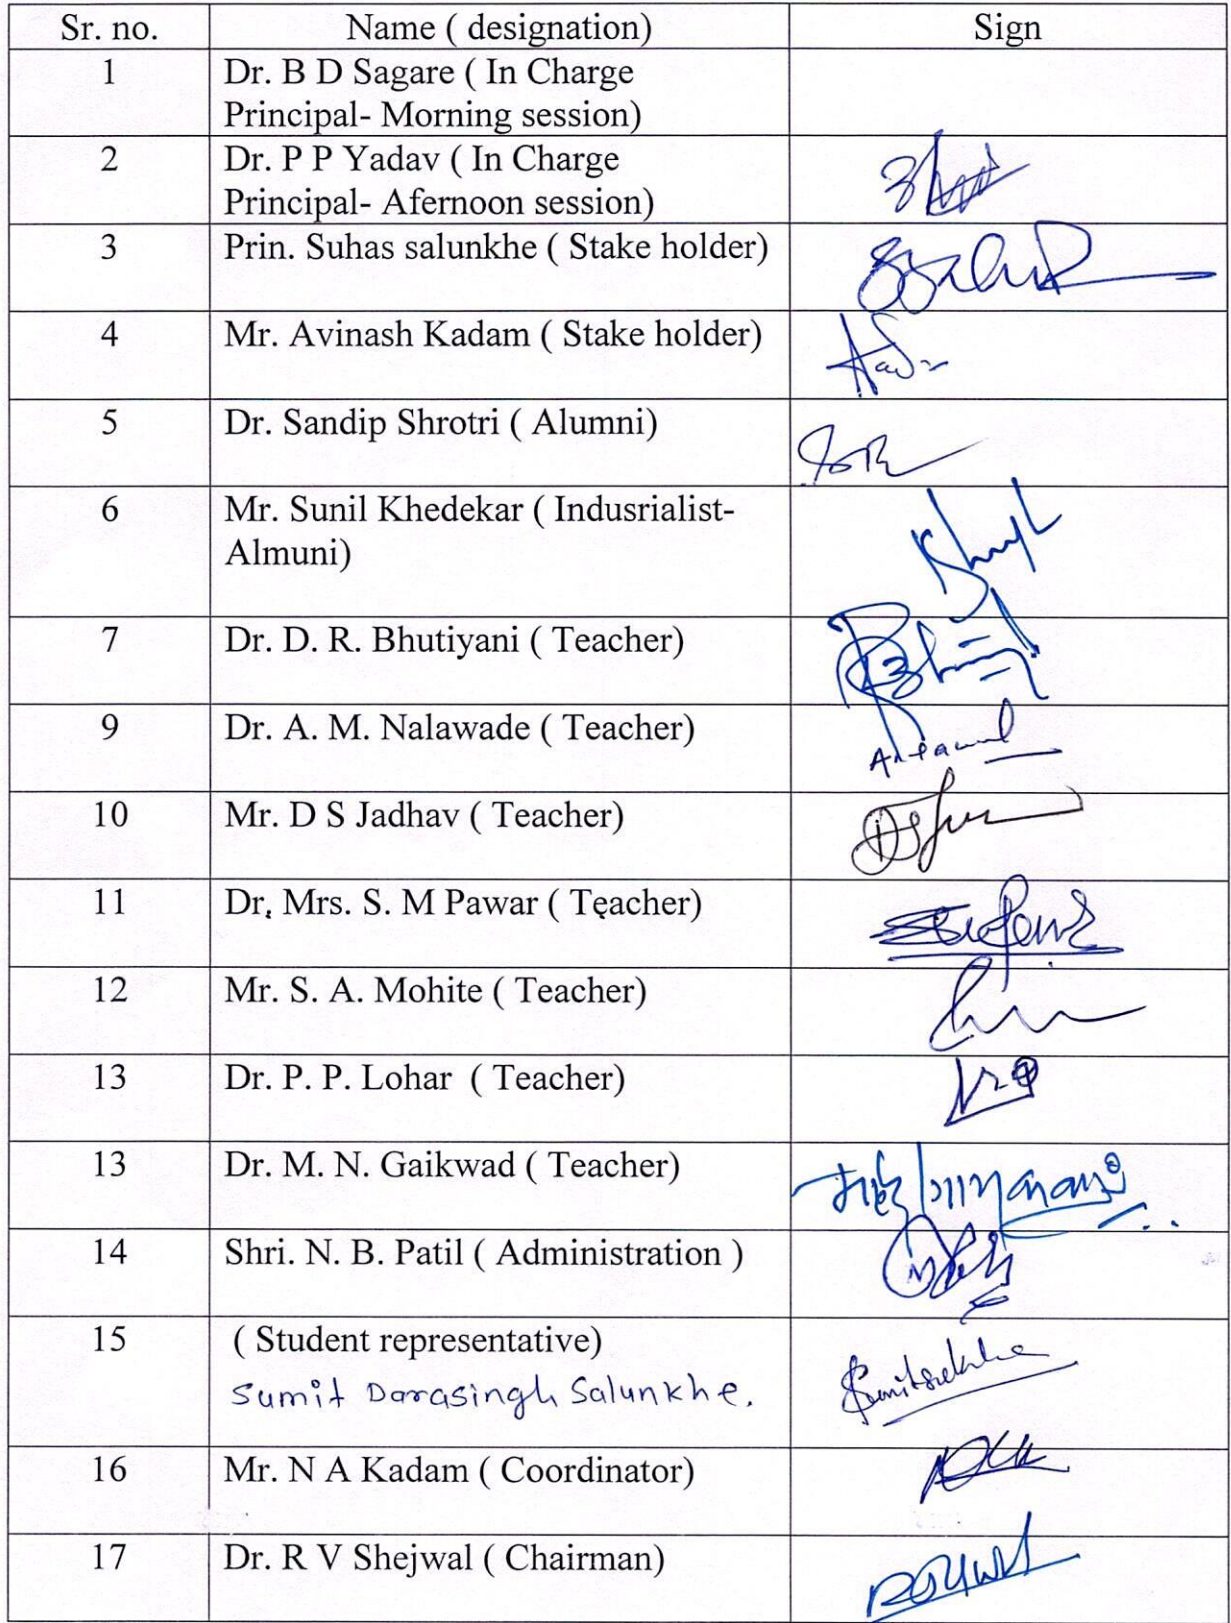 Sr. no. Name ( designation) Sign
1 Dr. B D Sagare ( In Charge
Principal- Morning session)
2 Dr. P P Yadav ( In Charge
Principal- Afernoon session)
3 Prin. Suhas salunkhe ( Stake holder)
4 Mr. Avinash Kadam ( Stake holder)
5 Dr. Sandip Shrotri ( Alumni)
6 Mr. Sunil Khedekar ( Indusrialist-
Almuni)
7 Dr. D. R. Bhutiyani ( Teacher)
9 Dr. A. M. Nalawade ( Teacher)
10 Mr. D S Jadhav ( Teacher)
11 Dr. Mrs. S. M Pawar ( Teacher)
12 Mr. S. A. Mohite ( Teacher)
13 Dr. P. P. Lohar ( Teacher)
13 Dr. M. N. Gaikwad ( Teacher)
14 Shri. N. B. Patil ( Administration )
15 ( Student representative)
Sumit Darasingh Salunkhe.
16 Mr. N A Kadam ( Coordinator)
17 Dr. R V Shejwal ( Chairman)